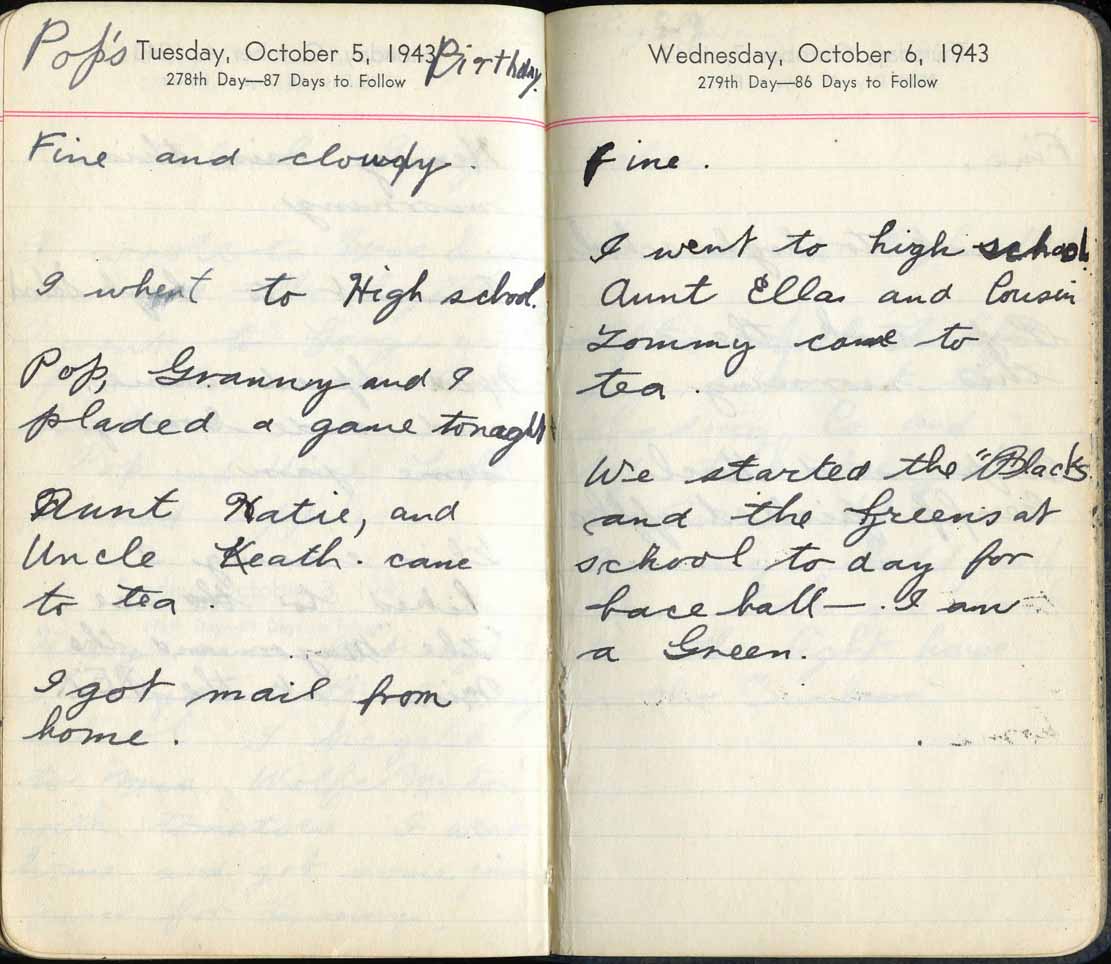 Pop's Tuesday, October 5, 1943 Birthday.
278th Day—87 Days to Follow
Fine and cloudy.
I whent to High school.
Pop, Granny and I
pladed a game tonaght
Aunt Katie, and
Uncle Keath. cane
to tea.
I got mail from
home.
Wednesday, October 6, 1943
279th Day—86 Days to Follow
Fine.
I went to high school.
Aunt Ella and Cousin
Tommy came to
tea.
We started the "Blacks
and the Greens at
school to day for
bace ball—. I am
a Green.